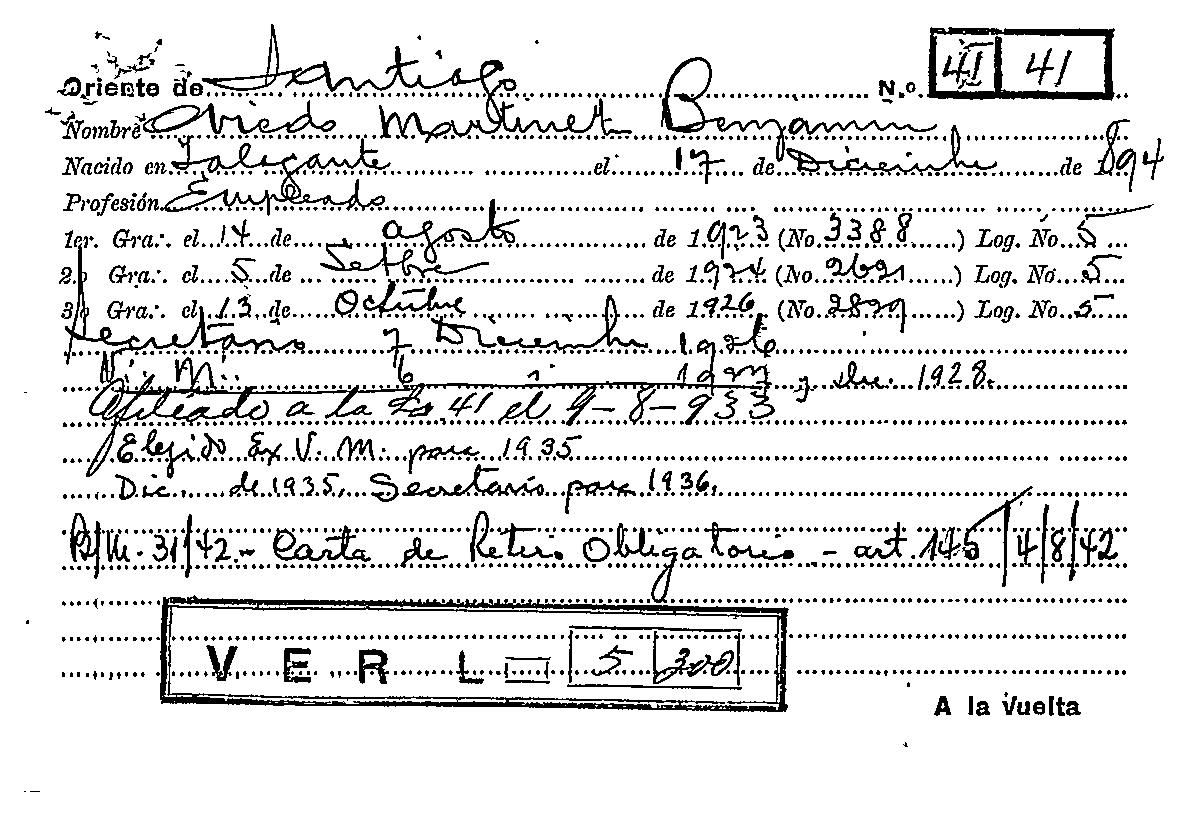 Oriente de Santiago N.o 41 41
Nombre Oviedo Martinez Benjamin
Nacido en Talagante el 17 de Diciembre de 894
Profesión Empleado
1er. Gra∴ el 14 de agosto de 1923 (No. 3388) Log. No 5
2.o Gra∴ el 5 de Setbre de 1924 (No. 2621) Log. No 5
3.o Gra∴ el 13 de Octubre de 1926 (No. 2879) Log. No 5
Secretario 7 Diciembre 1926
V∴ M∴ 6 " 1927 y Dic. 1928.
Afiliado a la Lo. 41 el 9-8-933
Elejido Ex V. M. para 1935
Dic. de 1935. Secretario para 1936.
B/M. 31/42.- Carta de Retiro Obligatorio - art. 145 / 4/8/42
VER L 5 300
A la vuelta